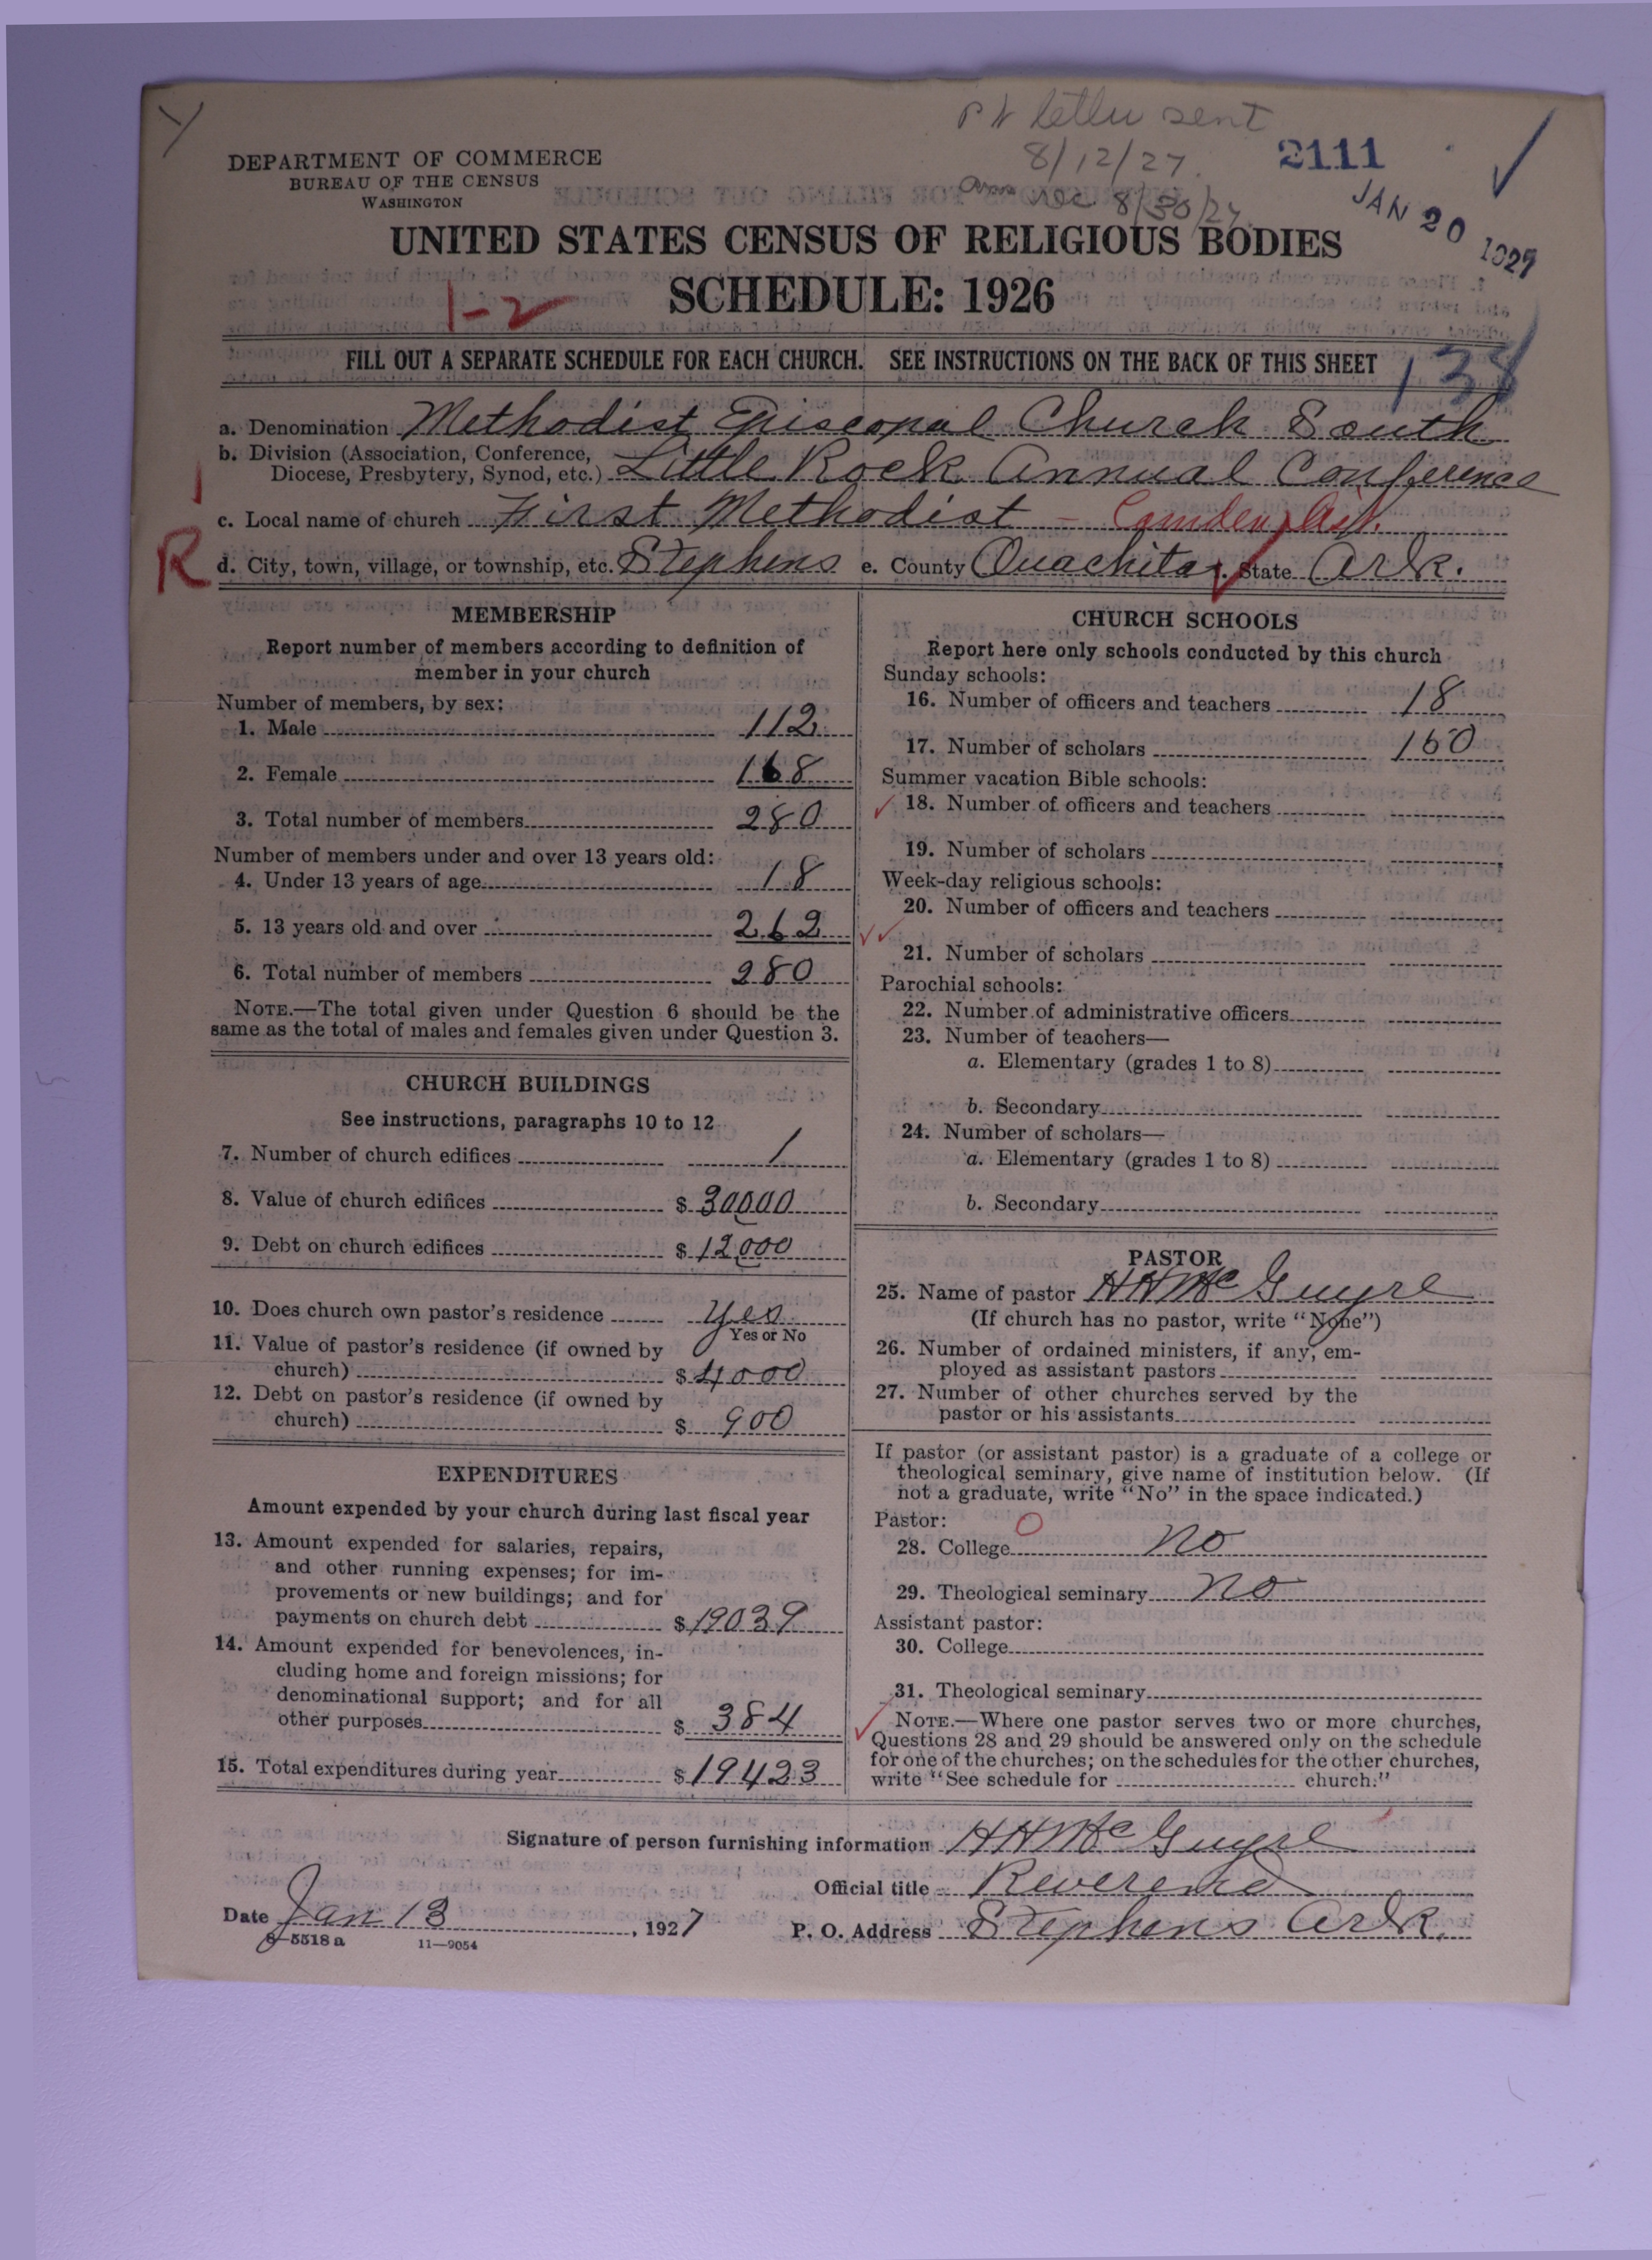 letter sent
8/12/27
2111
DEPARTMENT OF COMMERCE
BUREAU OF THE CENSUS
WASHINGTON
8/30/27
JAN 20 1927
UNITED STATES CENSUS OF RELIGIOUS BODIES
1-2
SCHEDULE: 1926
FILL OUT A SEPARATE SCHEDULE FOR EACH CHURCH. SEE INSTRUCTIONS ON THE BACK OF THIS SHEET
138
a. Denomination Methodist Episcopal Church South
b. Division (Association, Conference,
Diocese, Presbytery, Synod, etc.) Little Rock Annual Conference
c. Local name of church First Methodist - Camden,
R
d. City, town, village, or township, etc. Stephens e. County Ouachita f. State Ark.
MEMBERSHIP
Report number of members according to definition of
member in your church
Number of members, by sex:
1. Male 112
2. Female 168
3. Total number of members 280
Number of members under and over 13 years old:
4. Under 13 years of age 18
5. 13 years old and over 262
6. Total number of members 280
NOTE.—The total given under Question 6 should be the
same as the total of males and females given under Question 3.
CHURCH BUILDINGS
See instructions, paragraphs 10 to 12
7. Number of church edifices 1
8. Value of church edifices $ 30000
9. Debt on church edifices $ 12000
10. Does church own pastor's residence yes
Yes or No
11. Value of pastor's residence (if owned by
church) $ 4000
12. Debt on pastor's residence (if owned by
church) $ 900
EXPENDITURES
Amount expended by your church during last fiscal year
13. Amount expended for salaries, repairs,
and other running expenses; for im-
provements or new buildings; and for
payments on church debt $ 19039
14. Amount expended for benevolences, in-
cluding home and foreign missions; for
denominational support; and for all
other purposes $ 384
15. Total expenditures during year $ 19423
CHURCH SCHOOLS
Report here only schools conducted by this church
Sunday schools:
16. Number of officers and teachers 18
17. Number of scholars 160
Summer vacation Bible schools:
18. Number of officers and teachers
19. Number of scholars
Week-day religious schools:
20. Number of officers and teachers
21. Number of scholars
Parochial schools:
22. Number of administrative officers
23. Number of teachers—
a. Elementary (grades 1 to 8)
b. Secondary
24. Number of scholars—
a. Elementary (grades 1 to 8)
b. Secondary
PASTOR
25. Name of pastor H H McGuyre
(If church has no pastor, write "None")
26. Number of ordained ministers, if any, em-
ployed as assistant pastors
27. Number of other churches served by the
pastor or his assistants
If pastor (or assistant pastor) is a graduate of a college or
theological seminary, give name of institution below. (If
not a graduate, write "No" in the space indicated.)
Pastor: O
28. College no
29. Theological seminary no
Assistant pastor:
30. College
31. Theological seminary
NOTE.—Where one pastor serves two or more churches,
Questions 28 and 29 should be answered only on the schedule
for one of the churches; on the schedules for the other churches,
write "See schedule for church."
Signature of person furnishing information H H McGuyre
Official title Reverend
Date Jan 13, 1927 P. O. Address Stephens Ark.
8-5518 a 11-9054